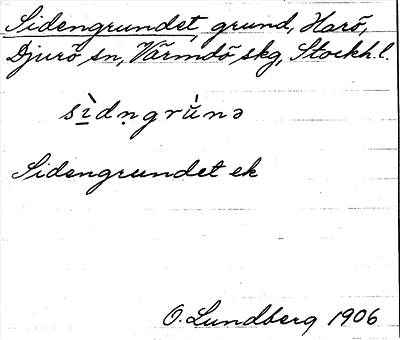 Sidengrundet, grund, Harö,
Djurö sn, Värmdö skg, Stockh.l.
sì̱dṇgrŭ̀nə
Sidengrundet ek
O. Lundberg 1906